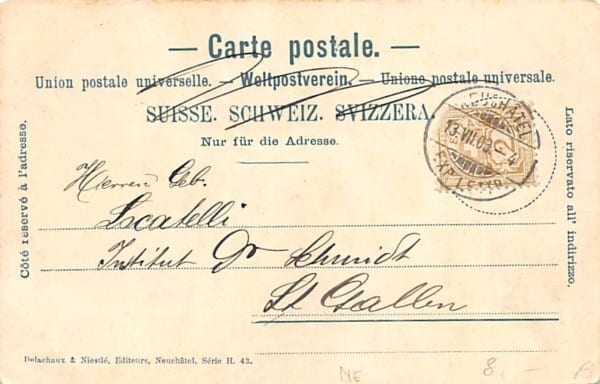 — Carte postale. —
Union postale universelle. — Weltpostverein. — Unione postale universale.
SUISSE. SCHWEIZ. SVIZZERA.
Nur für die Adresse.
Côté réservé à l'adresse.
Lato riservato all' indirizzo.
NEUCHÂTEL
13.VII.03. 4
Herren Geb.
Locatelli
Institut Dr Schmidt
St Gallen
Delachaux & Niestlé, Editeurs, Neuchâtel. Série H. 43.
NE
8.-